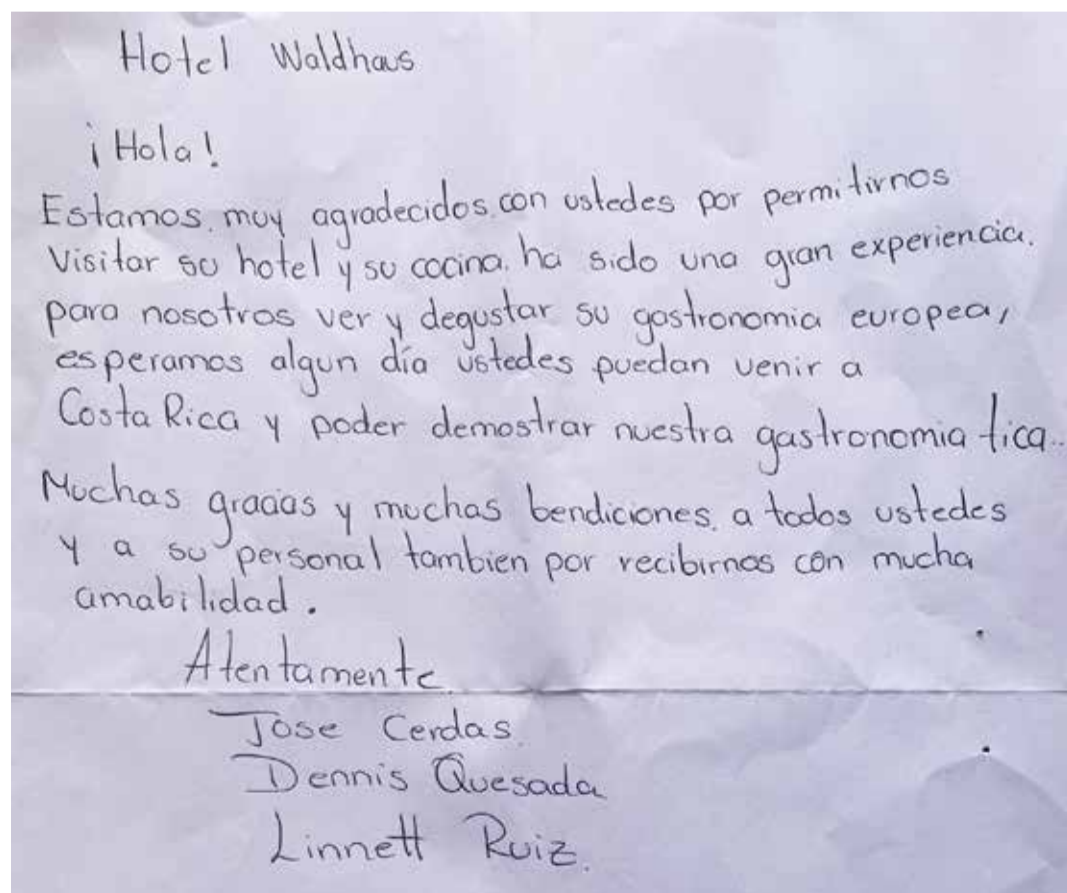 Hotel Waldhaus
¡Hola!
Estamos muy agradecidos con ustedes por permitirnos
Visitar su hotel y su cocina, ha sido una gran experiencia.
para nosotros ver y degustar su gastronomia europea,
esperamos algun día ustedes puedan venir a
Costa Rica y poder demostrar nuestra gastronomia tica..
Muchas gracias y muchas bendiciones a todos ustedes
y a su personal tambien por recibirnos con mucha
amabilidad.
Atentamente
Jose Cerdas
Dennis Quesada
Linnett Ruiz.